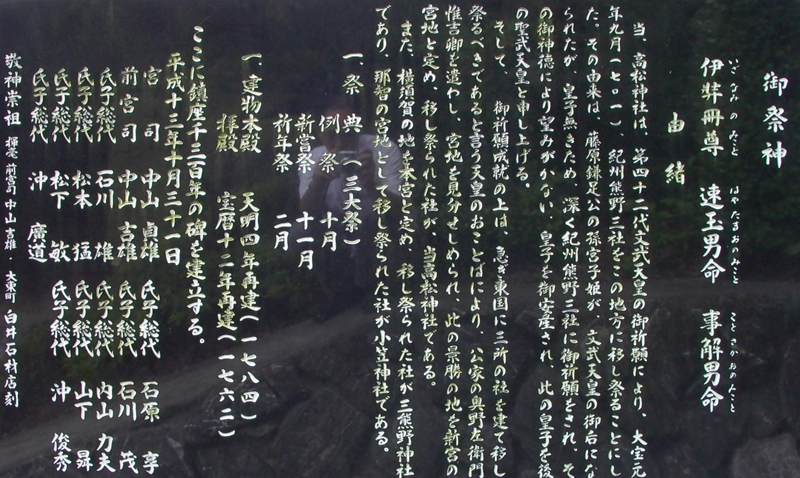 御祭神
伊弉冊尊 速玉男命 事解男命
いざなみのみこと はやたまおのみこと ことさかおのみこと
由緒
当、高松神社は、第四十二代文武天皇の御祈願により、大宝元
年九月(七〇一)、紀州熊野三社をこの地方に移し祭ることにし
た。その由来は、藤原鎌足公の孫宮子姫が、文武天皇の御后にな
られたが、皇子無きため、深く紀州熊野三社に御祈願をされ、そ
の御神徳により望みがかない、皇子を御安産され、此の皇子を後
の聖武天皇と申し上げる。
そして、御祈願成就の上は、急ぎ東国に三所の社を建て移し
祭るべきであると言う天皇のおことばにより、公家の奥野左衛門
惟吉卿を遣わし、宮地を見分せしめられ、此の景勝の地を新宮の
宮地と定め、移し祭られた社が、当高松神社である。
また、横須賀の地を本宮と定め、移し祭られた社が三熊野神社
であり、那智の宮地として移し祭られた社が小笠神社である。
一、祭典(三大祭)
例祭 十月
新嘗祭 十一月
祈年祭 二月
一、建物本殿 天明四年再建(一七八四)
拝殿 宝暦十二年再建(一七六二)
ここに鎮座千三百年の碑を建立する。
平成十三年十月三十一日
宮司 中山貞雄 氏子総代 石原享
前宮司 中山吉雄 氏子総代 石川茂
氏子総代 石川雄 氏子総代 内山力夫
氏子総代 松本猛 氏子総代 山下曻
氏子総代 松下敏 氏子総代 沖俊秀
氏子総代 沖廣道
敬神崇祖 揮毫 前宮司 中山吉雄・大東町 白井石材店刻